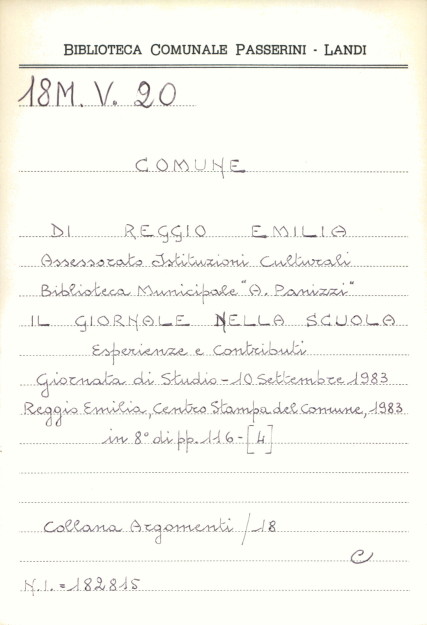 BIBLIOTECA COMUNALE PASSERINI - LANDI
18M. V. 20
COMUNE
DI REGGIO EMILIA
Assessorato Istituzioni Culturali
Biblioteca Municipale "A. Panizzi"
IL GIORNALE NELLA SCUOLA
Esperienze e Contributi
Giornata di Studio - 10 Settembre 1983
Reggio Emilia, Centro Stampa del Comune, 1983
in 8° di pp. 116 - [4]
Collana Argomenti / 18
C
N.I. = 182815